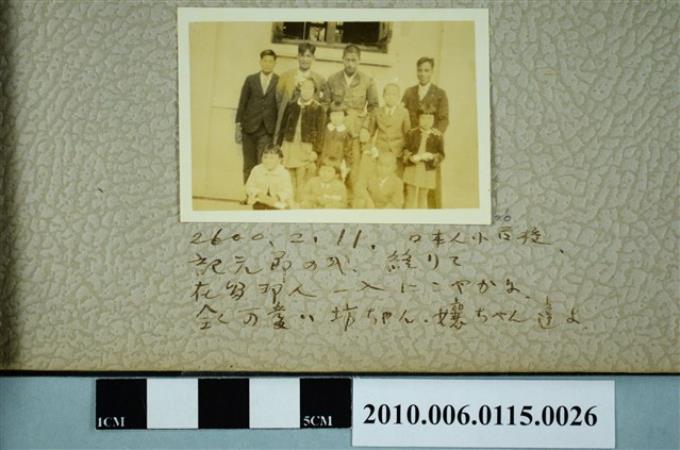 2600.2.11. 日本人小学校、
紀元節の式、終りて
在留邦人一入にこやかな
全くの愛い坊ちゃん・嬢ちゃん達よ
1CM 5CM
2010.006.0115.0026